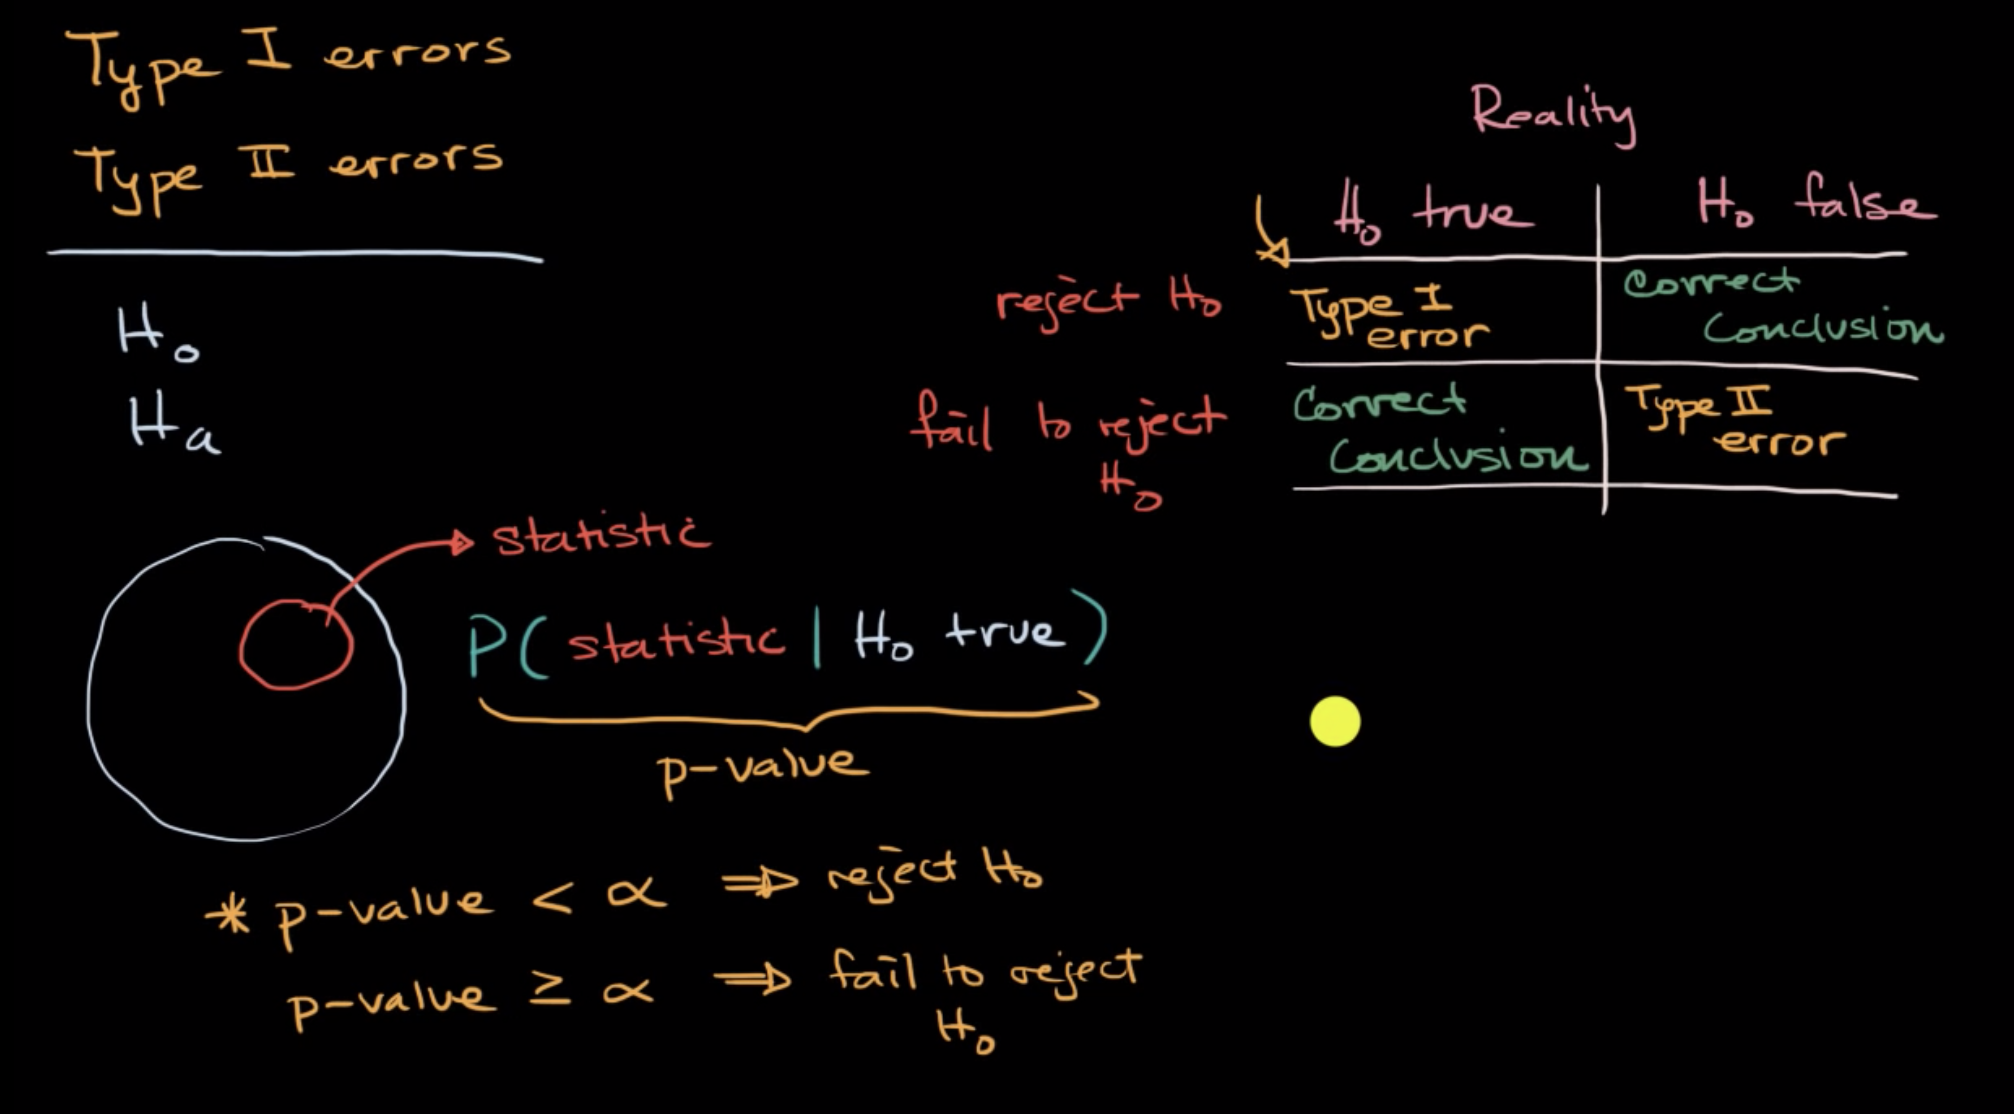 Type I errors
Type II errors
H₀
Hₐ
statistic
P( statistic | H₀ true )
p-value
* p-value < α ⇒ reject H₀
p-value ≥ α ⇒ fail to reject
H₀
Reality
H₀ true H₀ false
reject H₀ Type I error Correct Conclusion
fail to reject H₀ Correct Conclusion Type II error